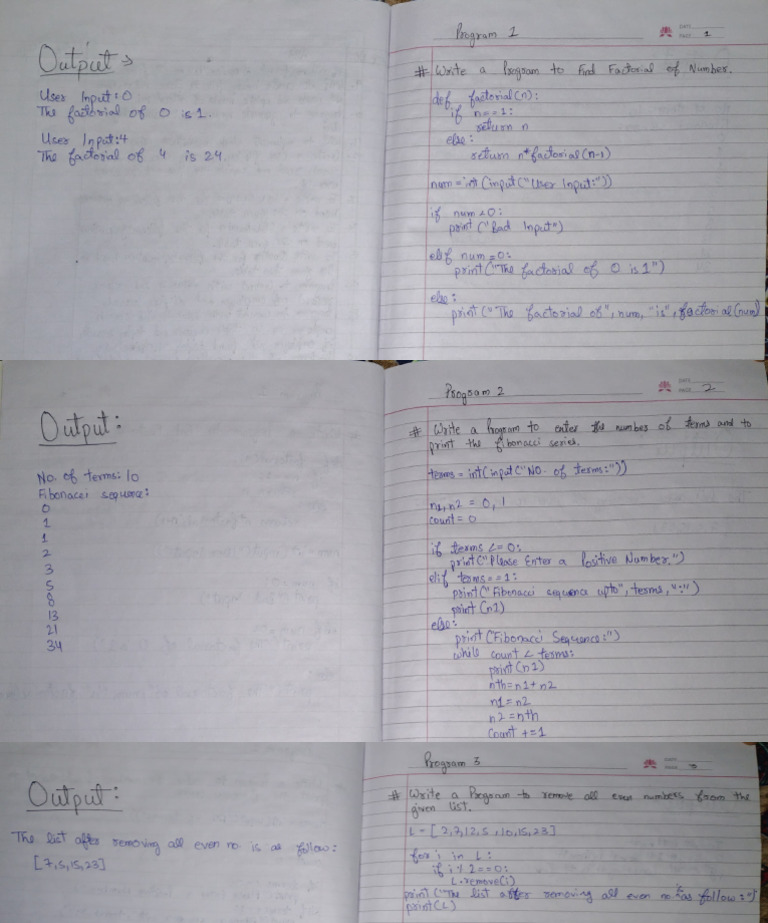 Output →
User Input:0
The factorial of 0 is 1.
User Input:4
The factorial of 4 is 24.
Program 1
DATE
PAGE 1
# Write a Program to Find Factorial of Number.
def factorial(n):
if n==1:
return n
else:
return n*factorial(n-1)
num=int(input("User Input:"))
if num<0:
print ("Bad Input")
elif num=0:
print("The factorial of 0 is 1")
else:
print("The factorial of", num, "is", factorial(num)
Output:
No. of terms: 10
Fibonacci sequence:
0
1
1
2
3
5
8
13
21
34
Program 2
DATE
PAGE 2
# Write a Program to enter the number of terms and to
print the fibonacci series.
terms = int(input("NO. of terms:"))
n1, n2 = 0, 1
count = 0
if terms <= 0:
print("Please Enter a Positive Number.")
elif terms==1:
print("Fibonacci sequence upto", terms, ":")
print (n1)
else:
print("Fibonacci Sequence:")
while count < terms:
print(n1)
nth=n1+n2
n1=n2
n2=nth
Count +=1
Output:
The list after removing all even no. is as follow:
[7,5,15,23]
Program 3
DATE
PAGE 3
# Write a Program to remove all even numbers from the
given list.
L = [2,7,12,5,10,15,23]
for i in L:
if i%2==0:
L.remove(i)
print("The list after removing all even no is as follow:")
print(L)